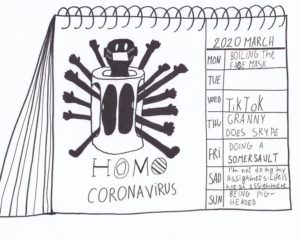 2020 MARCH
MON BOILING THE
FACE MASK
TUE
WED TIKTOK
THU GRANNY
DOES SKYPE
FRI DOING A
SOMERSAULT
SAD I'm not doing my
assignments. Life is
not an assignment
SUN BEING PIG-
HEADED
HOMO
CORONAVIRUS